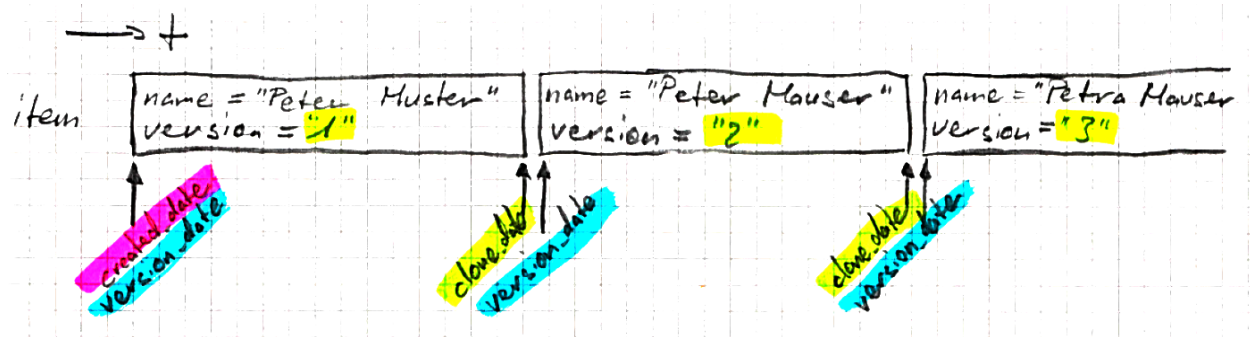 t
item
name = "Peter Muster"
version = "1"
name = "Peter Mauser"
version = "2"
name = "Petra Mauser
version = "3"
created_date
version_date
clone_date
version_date
clone_date
version_date